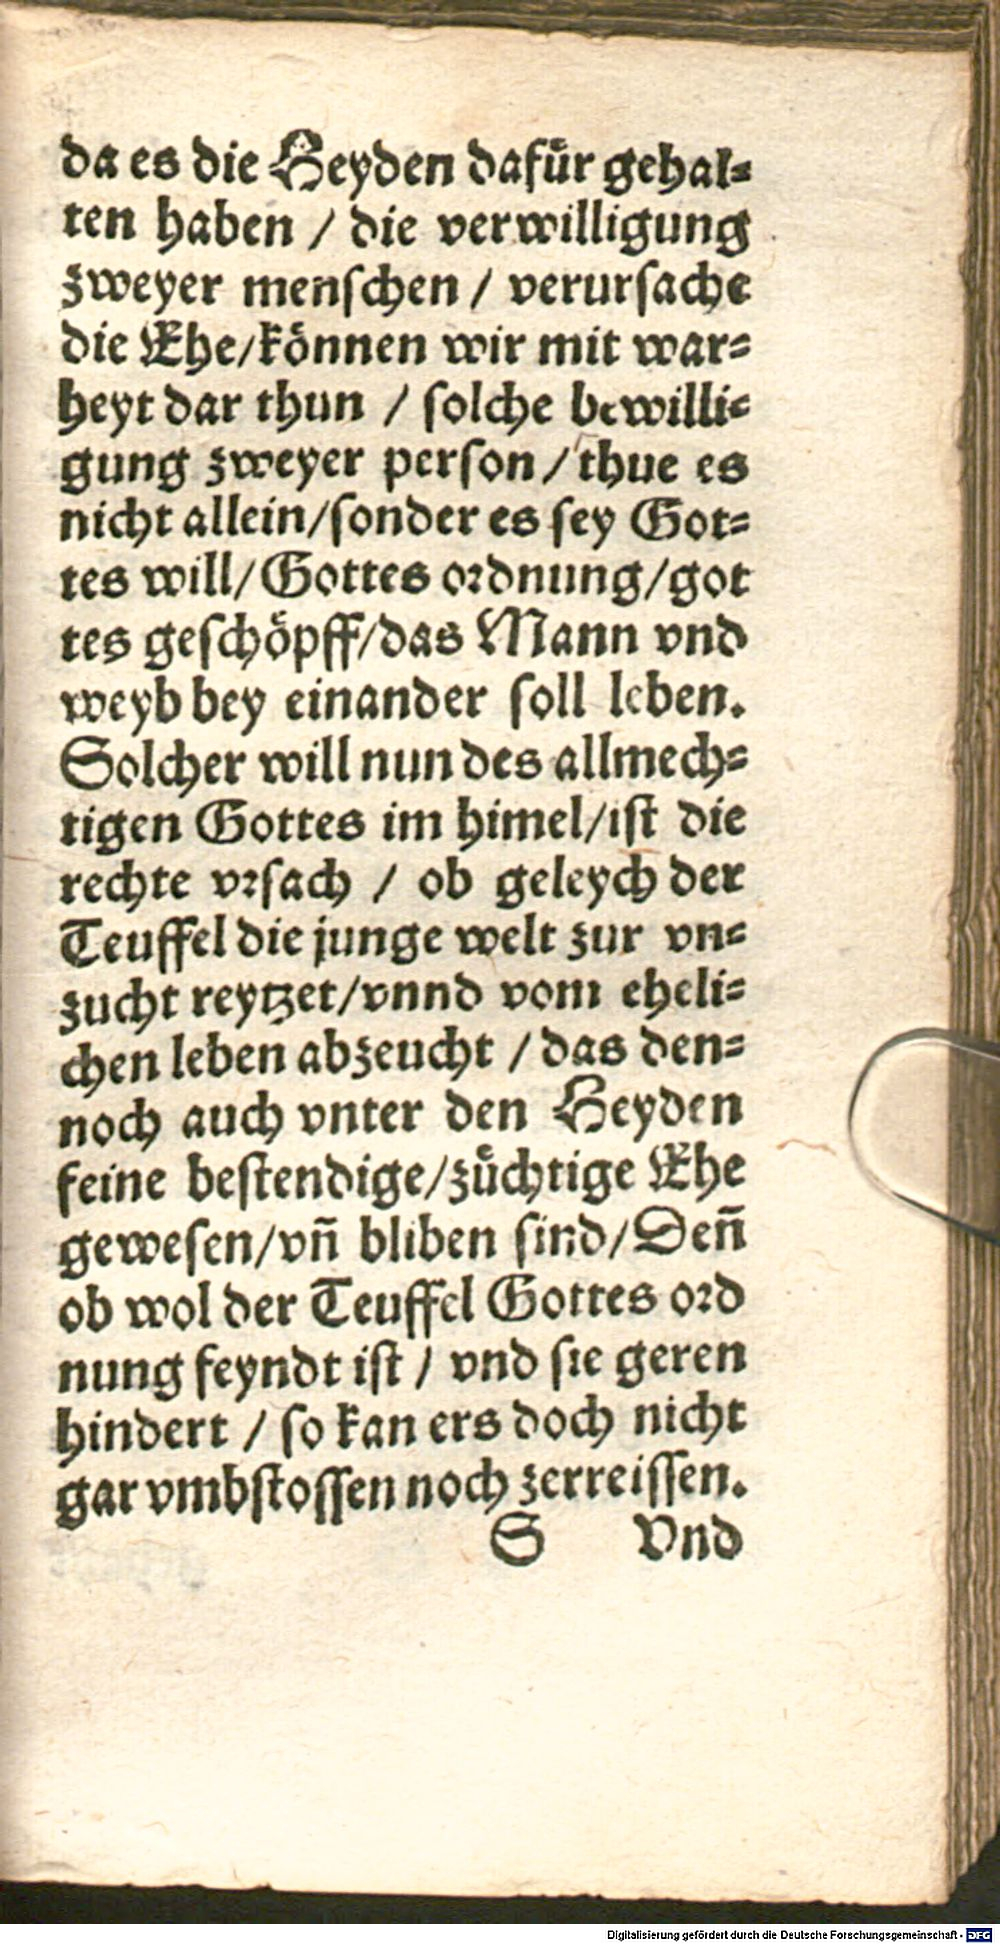 da es die Heyden dafür gehal⸗
ten haben / die verwilligung
zweyer menſchen / verurſache
die Ehe/können wir mit war⸗
heyt dar thun / ſolche bewilli⸗
gung zweyer perſon/thue es
nicht allein/ſonder es ſey Got⸗
tes will/Gottes oꝛdnung/got
tes geſchöpff/das Mann vnd
weyb bey einander ſoll leben.
Solcher will nun des allmech⸗
tigen Gottes im himel/iſt die
rechte vꝛſach / ob geleych der
Teuffel die junge welt zur vn⸗
zucht reytzet/vnnd vom eheli⸗
chen leben abzeucht / das den⸗
noch auch vnter den Heyden
feine beſtendige/zuͤchtige Ehe
geweſen/vn̄ bliben ſind/Den̄
ob wol der Teuffel Gottes oꝛd
nung feyndt iſt / vnd ſie geren
hindert / ſo kan ers doch nicht
gar vmbſtoſſen noch zerreiſſen.
S Vnd
Digitalisierung gefördert durch die Deutsche Forschungsgemeinschaft - DFG